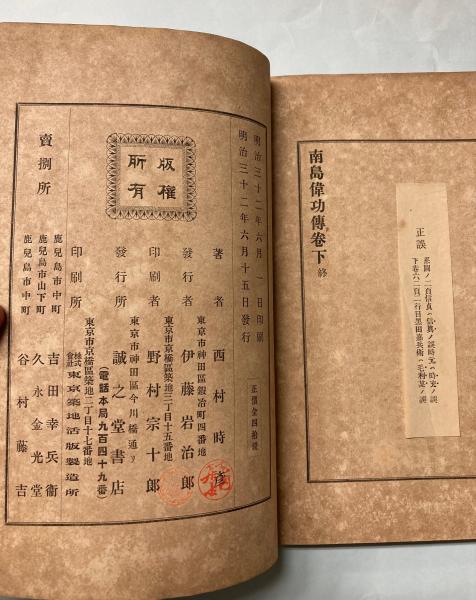 南島偉功傳卷下終
正誤
下卷六二頁二行目黑田嘉兵衛ハ毛利某ノ誤
明治三十二年六月一日印刷
明治三十二年六月十五日發行
正價金四拾錢
版權所有
著者 西村時彦
東京市神田區鍛冶町四番地
發行者 伊藤岩治郎
東京市京橋區築地三丁目十五番地
印刷者 野村宗十郎
東京市神田區今川橋通リ
發行所 誠之堂書店
(電話本局九百四十九番)
東京市京橋區築地二丁目十七番地
印刷所 株式會社東京築地活版製造所
賣捌所
鹿兒島市中町 吉田幸兵衞
鹿兒島市山下町 久永金光堂
鹿兒島市中町 谷村藤吉